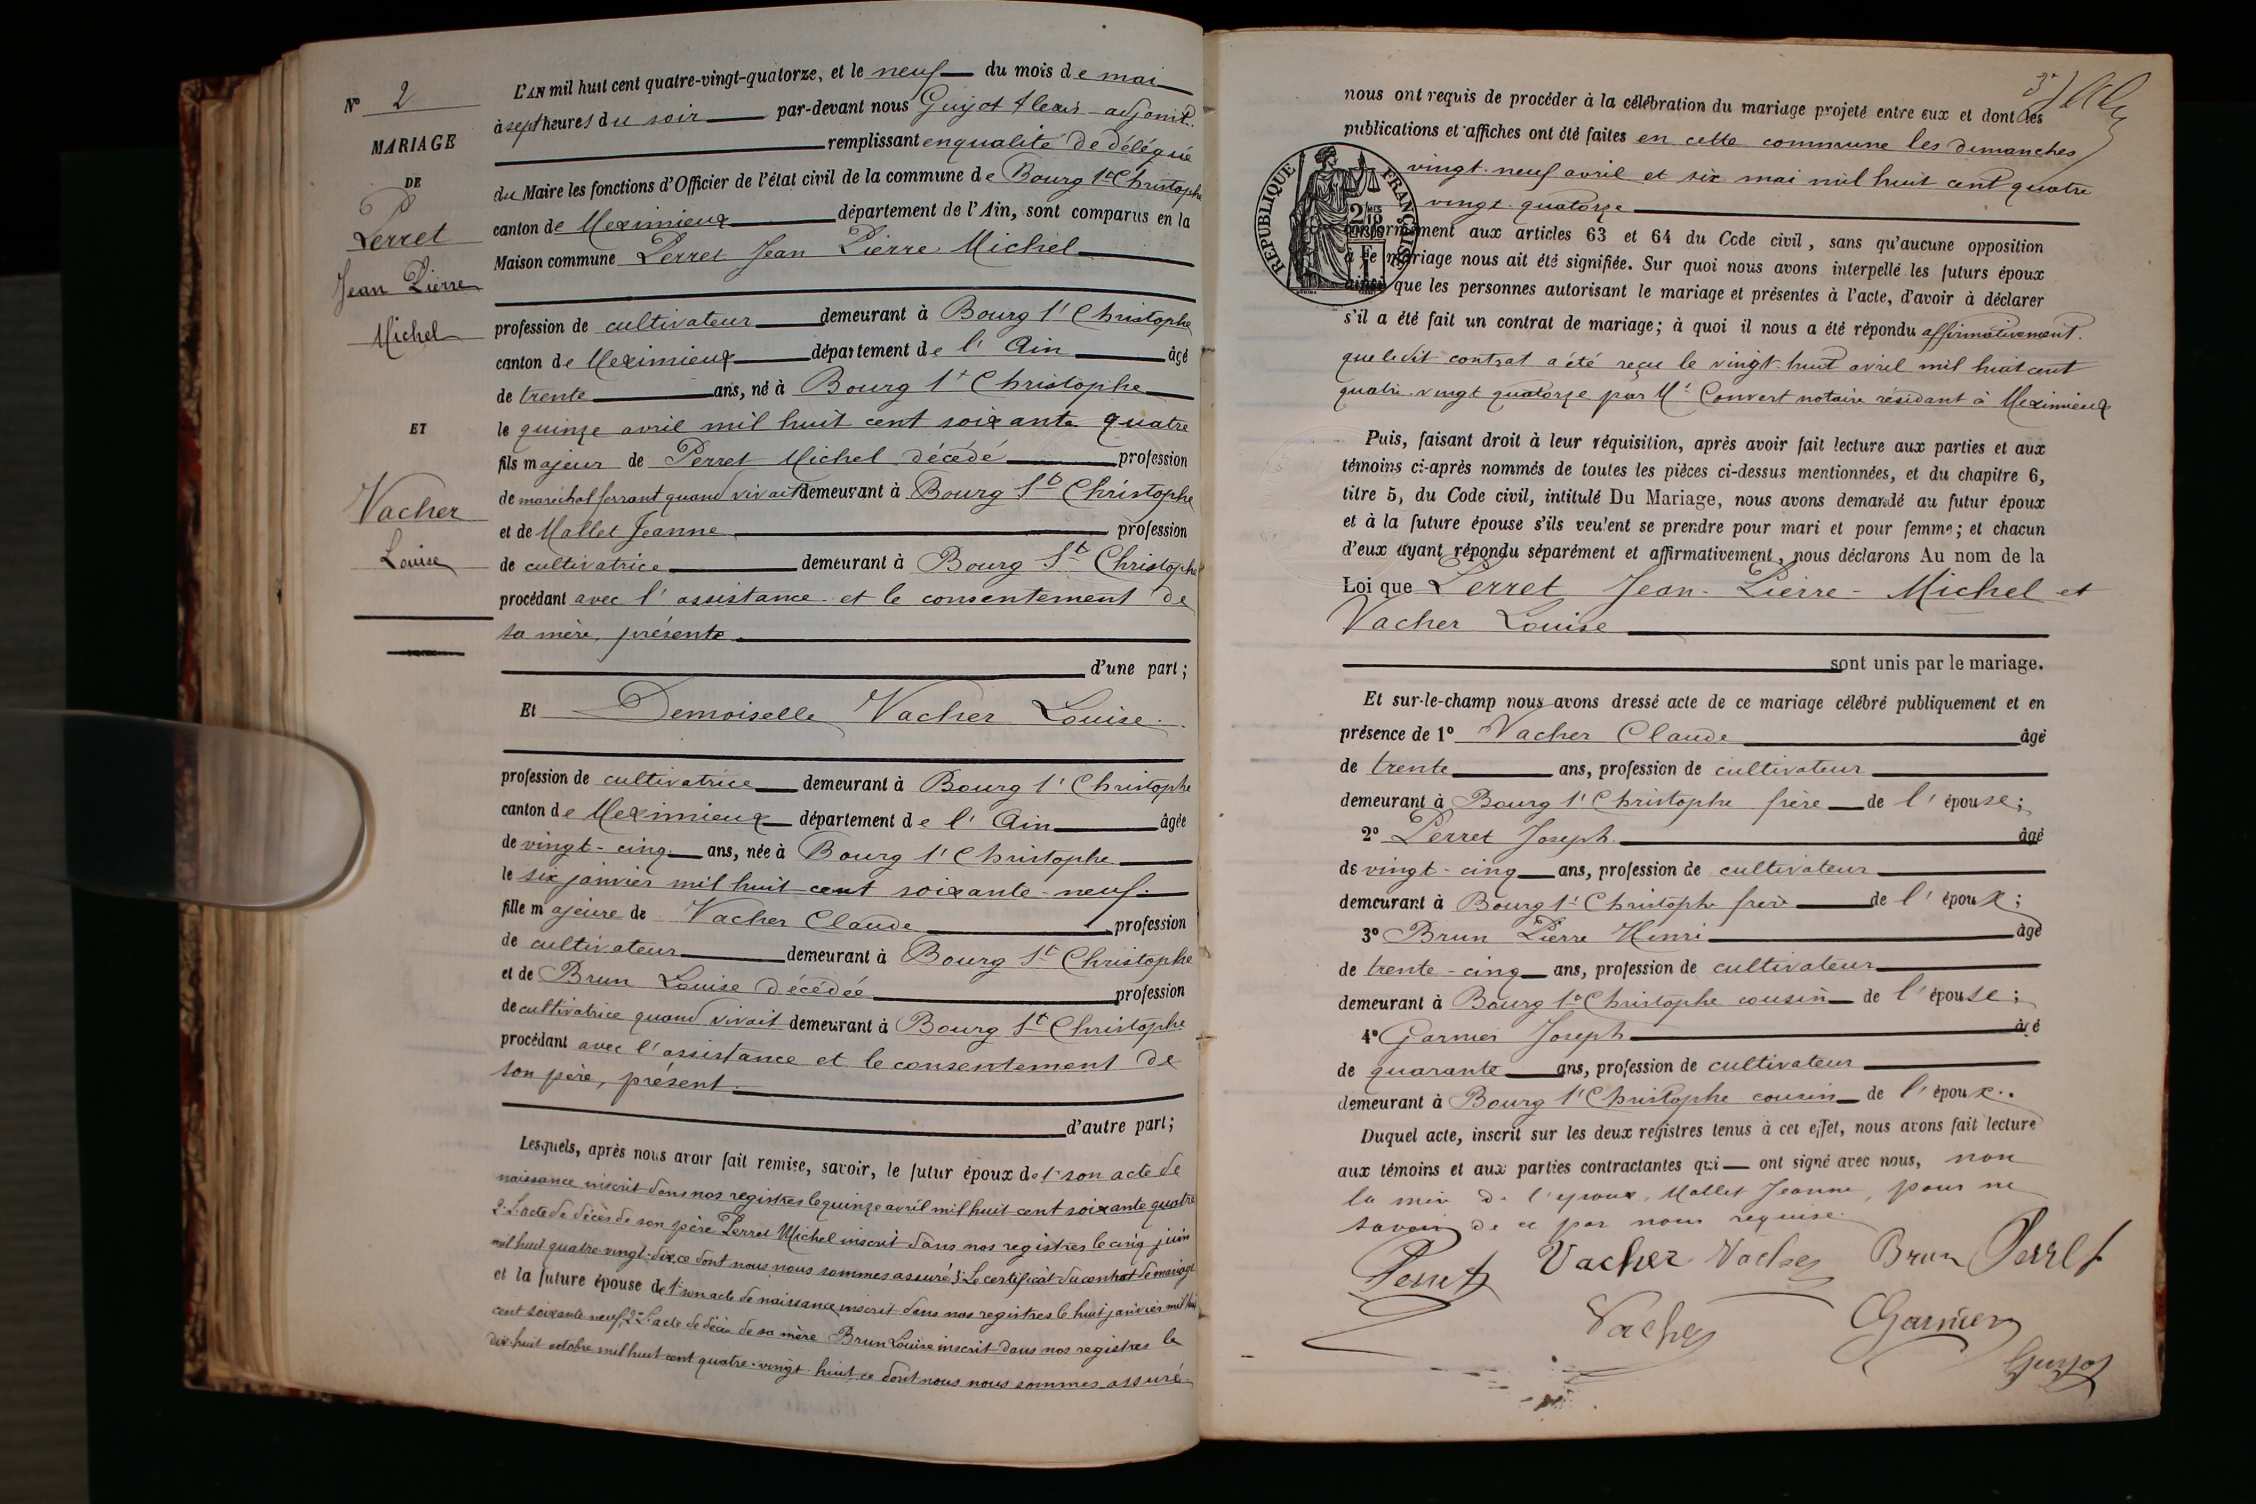 N° 2
MARIAGE
DE
Perret
Jean Pierre
Michel
ET
Vacher
Louise
L'AN mil huit cent quatre-vingt-quatorze, et le neuf du mois de mai
à sept heures du soir par-devant nous Guyot Alexis adjoint
remplissant en qualité de délégué
du Maire les fonctions d'Officier de l'état civil de la commune de Bourg St Christophe
canton de Meximieux département de l'Ain, sont comparus en la
Maison commune Perret Jean Pierre Michel
profession de cultivateur demeurant à Bourg St Christophe
canton de Meximieux département de l'Ain âgé
de trente ans, né à Bourg St Christophe
le quinze avril mil huit cent soixante quatre
fils majeur de Perret Michel décédé profession
de maréchal ferrant quand vivait demeurant à Bourg St Christophe
et de Mallet Jeanne profession
de cultivatrice demeurant à Bourg St Christophe
procédant avec l'assistance et le consentement de
sa mère, présente
d'une part;
Et Demoiselle Vacher Louise.
profession de cultivatrice demeurant à Bourg St Christophe
canton de Meximieux département de l'Ain âgée
de vingt-cinq ans, née à Bourg St Christophe
le six janvier mil huit cent soixante-neuf.
fille majeure de Vacher Claude profession
de cultivateur demeurant à Bourg St Christophe
et de Brun Louise décédée profession
de cultivatrice quand vivait demeurant à Bourg St Christophe
procédant avec l'assistance et le consentement de
son père, présent.
d'autre part;
Lesquels, après nous avoir fait remise, savoir, le futur époux de 1° son acte de
naissance inscrit dans nos registres le quinze avril mil huit cent soixante quatre
2° L'acte de décès de son père Perret Michel inscrit dans nos registres le cinq juin
mil huit quatre-vingt-dix, ce dont nous nous sommes assuré 3° Le certificat du contrat de mariage
et la future épouse de 1° son acte de naissance inscrit dans nos registres le huit janvier mil huit
cent soixante neuf, 2° L'acte de décès de sa mère Brun Louise inscrit dans nos registres le
dix-huit octobre mil huit cent quatre-vingt-huit ce dont nous nous sommes assuré
nous ont requis de procéder à la célébration du mariage projeté entre eux et dont les
publications et affiches ont été faites en cette commune les dimanches
vingt-neuf avril et six mai mil huit cent quatre
vingt-quatorze
RÉPUBLIQUE FRANÇAISE
conformément aux articles 63 et 64 du Code civil, sans qu'aucune opposition
à ce mariage nous ait été signifiée. Sur quoi nous avons interpellé les futurs époux
ainsi que les personnes autorisant le mariage et présentes à l'acte, d'avoir à déclarer
s'il a été fait un contrat de mariage; à quoi il nous a été répondu affirmativement.
que le dit contrat a été reçu le vingt-huit avril mil huit cent
quatre-vingt quatorze par Me Convert notaire résidant à Meximieux
Puis, faisant droit à leur réquisition, après avoir fait lecture aux parties et aux
témoins ci-après nommés de toutes les pièces ci-dessus mentionnées, et du chapitre 6,
titre 5, du Code civil, intitulé Du Mariage, nous avons demandé au futur époux
et à la future épouse s'ils veulent se prendre pour mari et pour femme; et chacun
d'eux ayant répondu séparément et affirmativement, nous déclarons Au nom de la
Loi que Perret Jean-Pierre-Michel et
Vacher Louise
sont unis par le mariage.
Et sur-le-champ nous avons dressé acte de ce mariage célébré publiquement et en
présence de 1° Vacher Claude âgé
de trente ans, profession de cultivateur
demeurant à Bourg St Christophe frère de l'épouse;
2° Perret Joseph âgé
de vingt-cinq ans, profession de cultivateur
demeurant à Bourg St Christophe frère de l'époux;
3° Brun Pierre Henri âgé
de trente-cinq ans, profession de cultivateur
demeurant à Bourg St Christophe cousin de l'épouse;
4° Garnier Joseph âgé
de quarante ans, profession de cultivateur
demeurant à Bourg St Christophe cousin de l'époux.
Duquel acte, inscrit sur les deux registres tenus à cet effet, nous avons fait lecture
aux témoins et aux parties contractantes qui ont signé avec nous, non
la mère de l'époux, Mallet Jeanne, pour ne
savoir de ce par nous requise.
Perret Vacher Vacher Brun Perret
Vacher Garnier
Guyot